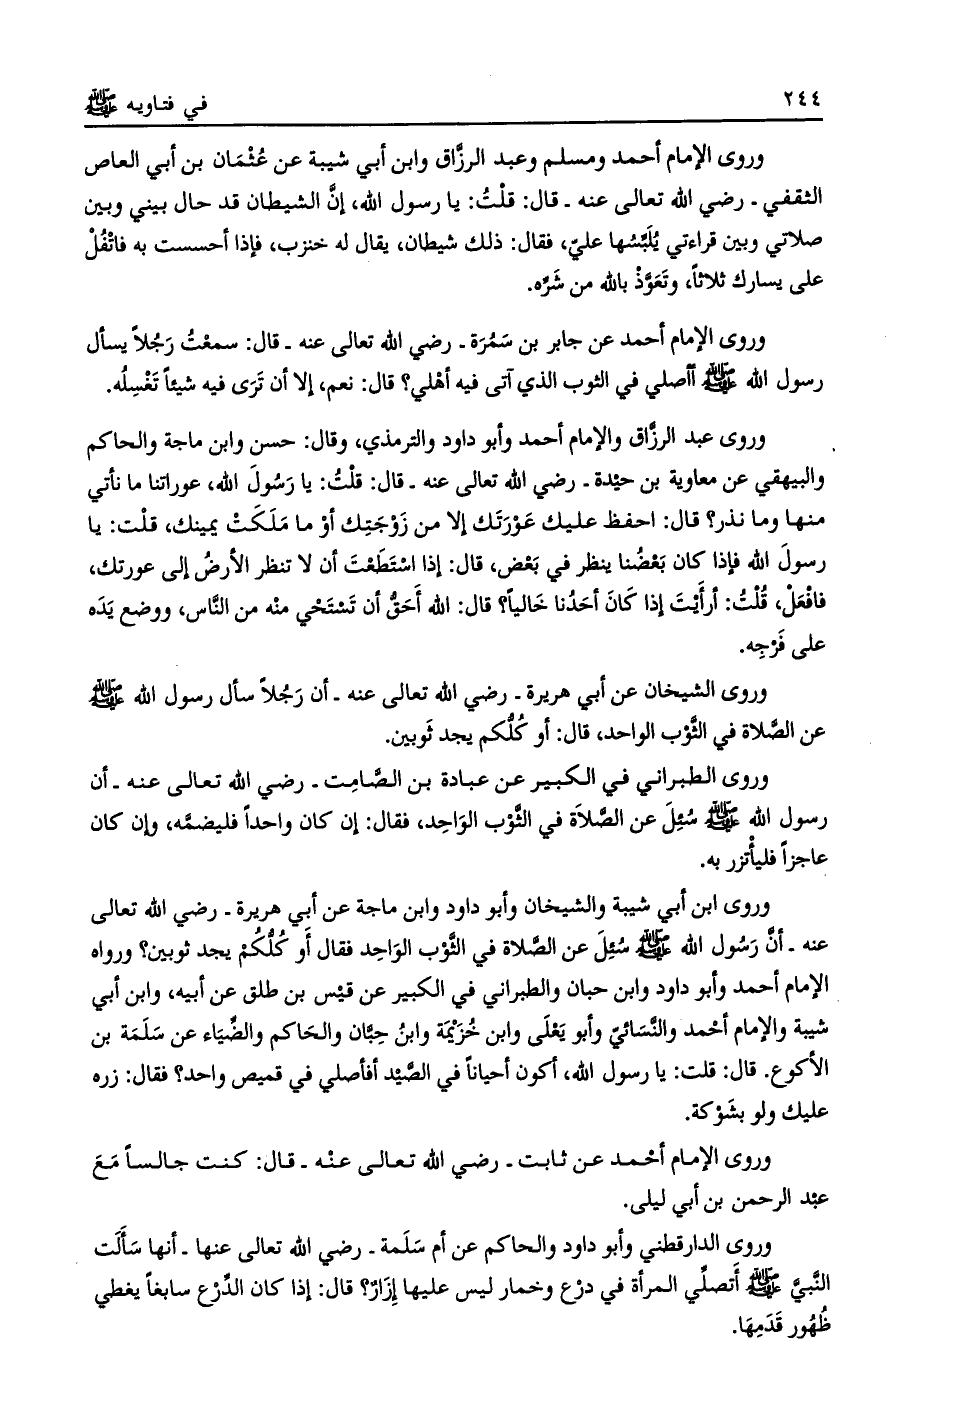 ٢٤٤
في فتاويه ﷺ
وروى الإمام أحمد ومسلم وعبد الرزَّاق وابن أبي شيبة عن عُثْمَان بن أبي العاص
الثقفي ـ رضي الله تعالى عنه ـ قال: قلْتُ: يا رسول الله، إنَّ الشيطان قد حال بيني وبين
صلاتي وبين قراءتي يُلَبِّسُها عليّ، فقال: ذلك شيطان، يقال له خنزب، فإذا أحسست به فاتْفُلْ
على يسارك ثلاثاً، وتَعَوَّذْ بالله من شَرِّه.
وروى الإمام أحمد عن جابر بن سَمُرَة ـ رضي الله تعالى عنه ـ قال: سمعْتُ رَجُلاً يسأل
رسول الله ﷺ أأصلي في الثوب الذي آتى فيه أهلي؟ قال: نعم، إلا أن تَرَى فيه شيئاً تَغْسِلُه.
وروى عبد الرزَّاق والإمام أحمد وأبو داود والترمذي، وقال: حسن وابن ماجة والحاكم
والبيهقي عن معاوية بن حيْدة ـ رضي الله تعالى عنه ـ قال: قلْتُ: يا رَسُولَ الله، عوراتنا ما نأتي
منها وما نذر؟ قال: احفظ عليك عَوْرَتَك إلا من زَوْجَتِك أوْ ما مَلَكَتْ يمينك، قلْت: يا
رسولَ الله فإذا كان بَعْضُنا ينظر في بَعْض، قال: إذا اسْتَطَعْتَ أن لا تنظر الأرضُ إلى عورتك،
فافْعَلْ، قُلْتُ: أرأَيْتَ إذا كَانَ أحَدُنا خَالياً؟ قال: الله أَحَقُّ أن تَسْتَحْي منْه من النَّاس، ووضع يَدَه
على فَرْجِه.
وروى الشيخان عن أبي هريرة ـ رضي الله تعالى عنه ـ أن رَجُلاً سأل رسول الله ﷺ
عن الصَّلاة في الثَّوْب الواحد، قال: أو كُلُّكم يجد ثَوبين.
وروى الطبراني في الكبير عن عبادة بن الصَّامِت ـ رضي الله تعالى عنه ـ أن
رسول الله ﷺ سُئِلَ عن الصَّلاَة في الثَّوْب الوَاحِد، فقال: إن كان واحداً فليضمَّه، وإن كان
عاجزاً فليأْتزر به.
وروى ابن أبي شيبة والشيخان وأبو داود وابن ماجة عن أبي هريرة ـ رضي الله تعالى
عنه ـ أنَّ رَسُول الله ﷺ سُئِلَ عن الصَّلاة في الثَّوْب الوَاحِد فقال أَو كُلُّكُمْ يجد ثوبين؟ ورواه
الإمام أحمد وأبو داود وابن حبان والطبراني في الكبير عن قيْس بن طلق عن أبيه، وابن أبي
شيبة والإمام أحْمد والنَّسَائيّ وأبو يَعْلَى وابن خُزَيْمَة وابنُ حِبَّان والحَاكم والضِّيَاء عن سَلَمَة بن
الأكوع. قال: قلت: يا رسول الله، أكون أحياناً في الصَّيْد أفأصلي في قميص واحد؟ فقال: زره
عليك ولو بشَوْكة.
وروى الإمام أحْمد عن ثابت ـ رضي الله تعالى عنْه ـ قال: كنت جالساً مَعَ
عبْد الرحمن بن أبي ليلى.
وروى الدارقطني وأبو داود والحاكم عن أم سَلَمة ـ رضي الله تعالى عنها ـ أنها سَأَلَت
النَّبيَّ ﷺ أَتصلِّي المرأة في درْع وخمار ليس عليها إِزَارٌ؟ قال: إذا كان الدِّرْع سابغاً يغطي
ظُهُور قَدَمِهَا.